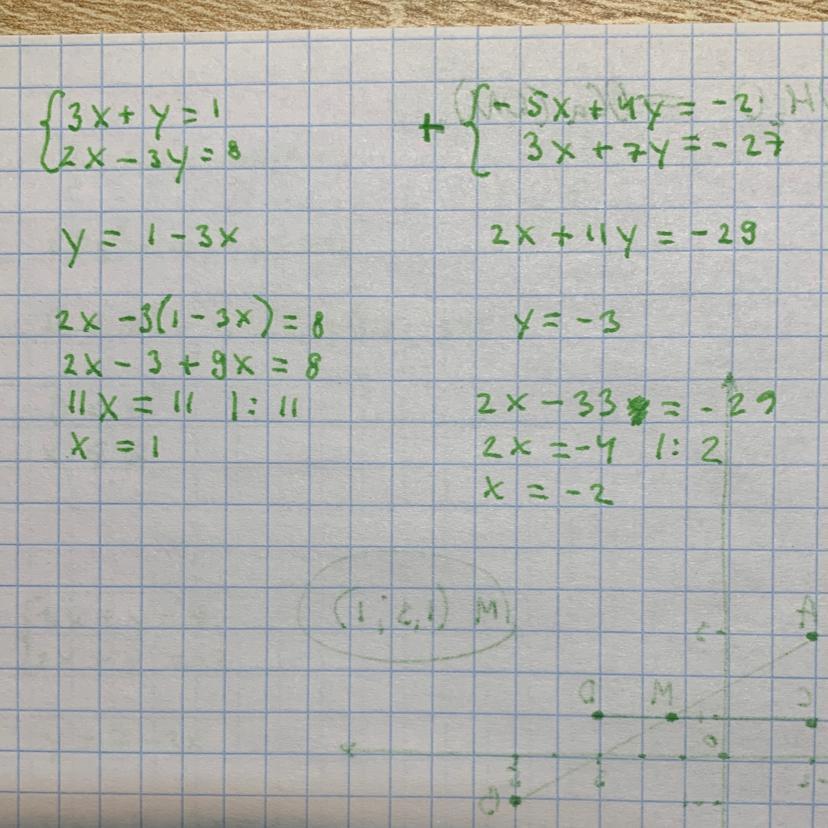 3x + y = 1
2x - 3y = 8
y = 1 - 3x
2x - 3(1 - 3x) = 8
2x - 3 + 9x = 8
11x = 11 | : 11
x = 1
+ - 5x + 4y = -2
3x + 7y = -27
2x + 11y = -29
y = -3
2x - 33 = -29
2x = -4 | : 2
x = -2